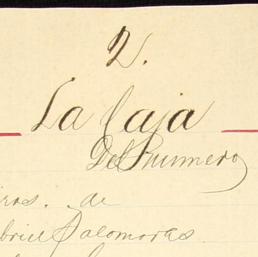 2.
La Caja
Del Primero
iros. de
abriel Palomoras